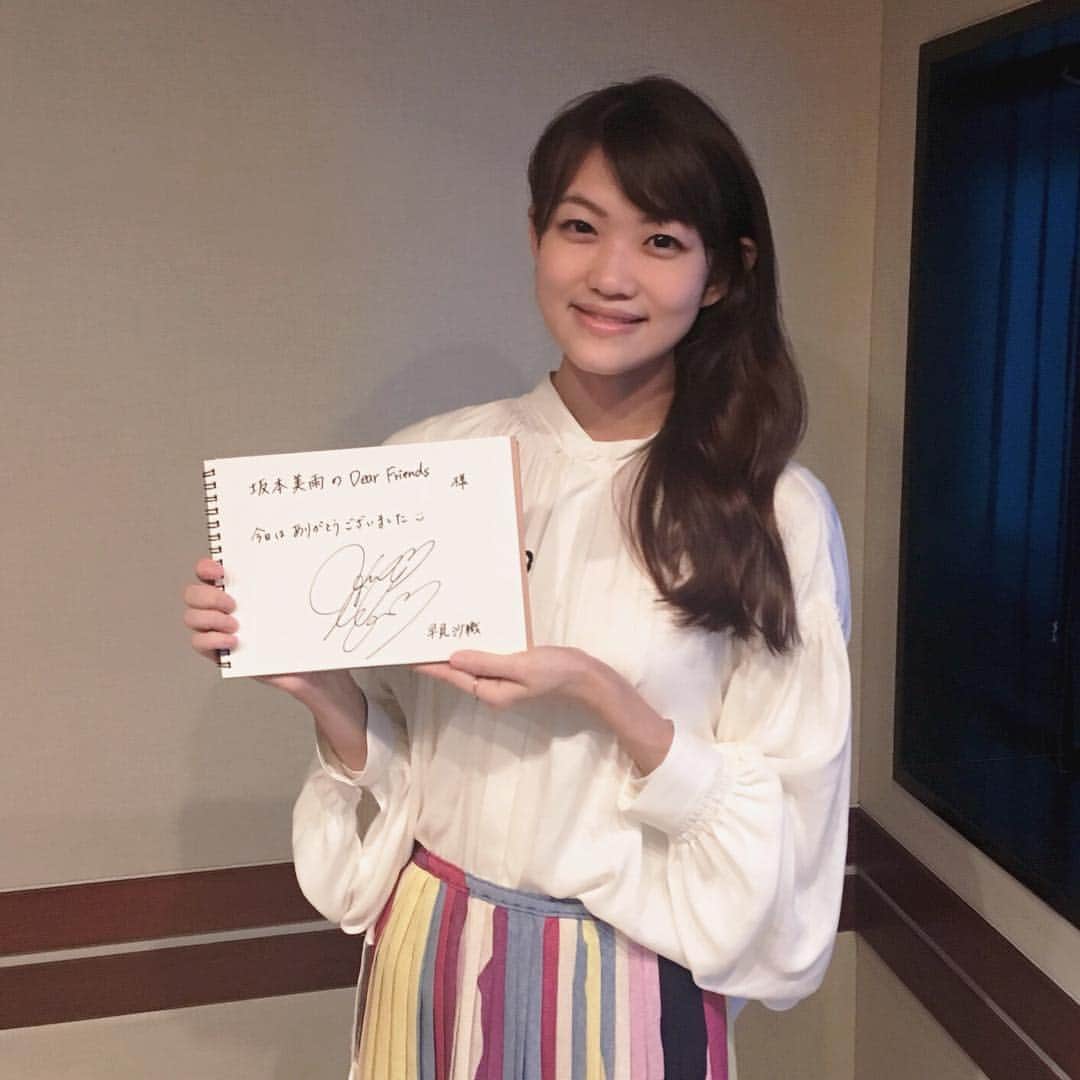 坂本美雨の Dear Friends 様
今日は ありがとうございました
早見沙織